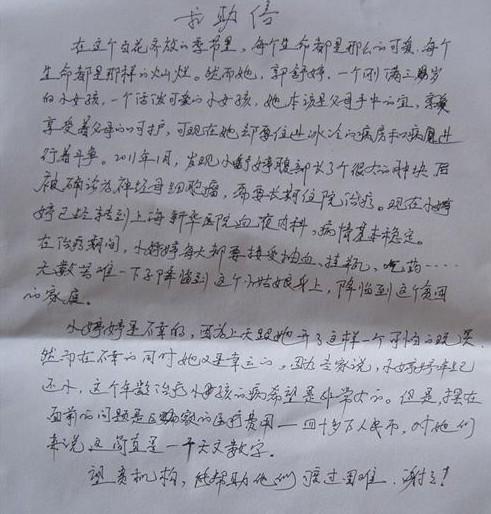 求助信
在这个百花齐放的季节里，每个生命都是那么的可爱，每个
生命都是那样的灿烂。然而她，郭舒婷，一个刚满三岁
的小女孩，一个活泼可爱的小女孩，她本该是父母手中的宝，
享受着父母的呵护，可现在她却要住进冰冷的病房和病魔进
行着斗争。2011年1月，发现小舒婷腹部长了个很大的肿块后
被确诊为神经母细胞瘤，需要长期住院治疗。现在小婷
婷已经转到上海新华医院血液内科，病情基本稳定。
在治疗期间，小婷婷每天都要接受抽血、挂瓶、吃药……
无数苦难一下子降临到这个小姑娘身上，降临到这个贫困
的家庭。
小婷婷是不幸的，因为上天跟她开了这样一个不的玩笑
然而在不幸的同时她又是幸运的，因为专家说，小婷婷年纪
还小，这个年龄治疗小女孩的病希望是非常大的。但是，摆在
面前的问题是巨额的医疗费用—四十多万人民币，对她们
来说这简直是一个天文数字。
望贵机构，能帮助他们渡过困难，谢谢！